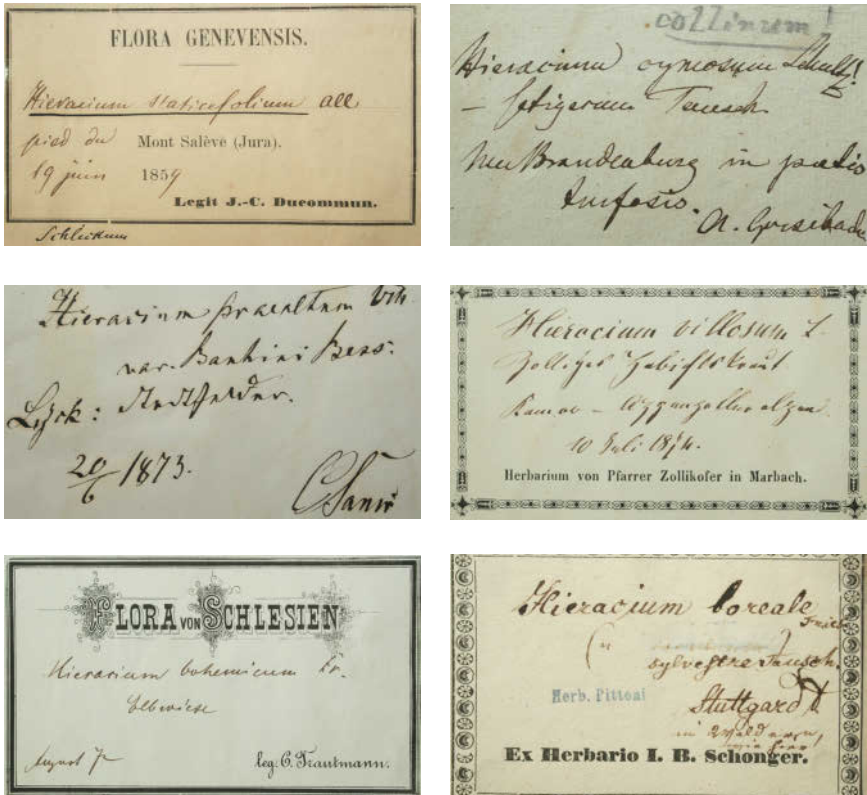 FLORA GENEVENSIS.
Hieracium staticefolium all
pied du Mont Salève (Jura).
19 juin 1859
Legit J.-C. Ducommun.
collinum!
Hieracium cymosum Schultz!
– setigerum Tausch
NeuBrandenburg in
A. Grisebach
Hieracium praealtum Vill.
var. Bauhini Bess:
Lyck:
20/6 1873.
C Sanio
Hieracium villosum L.
Zottiges Habichtskraut
Kamor –
10 Juli 1874.
Herbarium von Pfarrer Zollikofer in Marbach.
FLORA VON SCHLESIEN
Hieracium bohemicum Fr.
Elbwiese
August
leg. C. Trautmann.
Hieracium boreale
Fries
sylvestre Tausch.
Herb. Pittoni
Stuttgard
in Wäldern,
Ex Herbario I. B. Schonger.